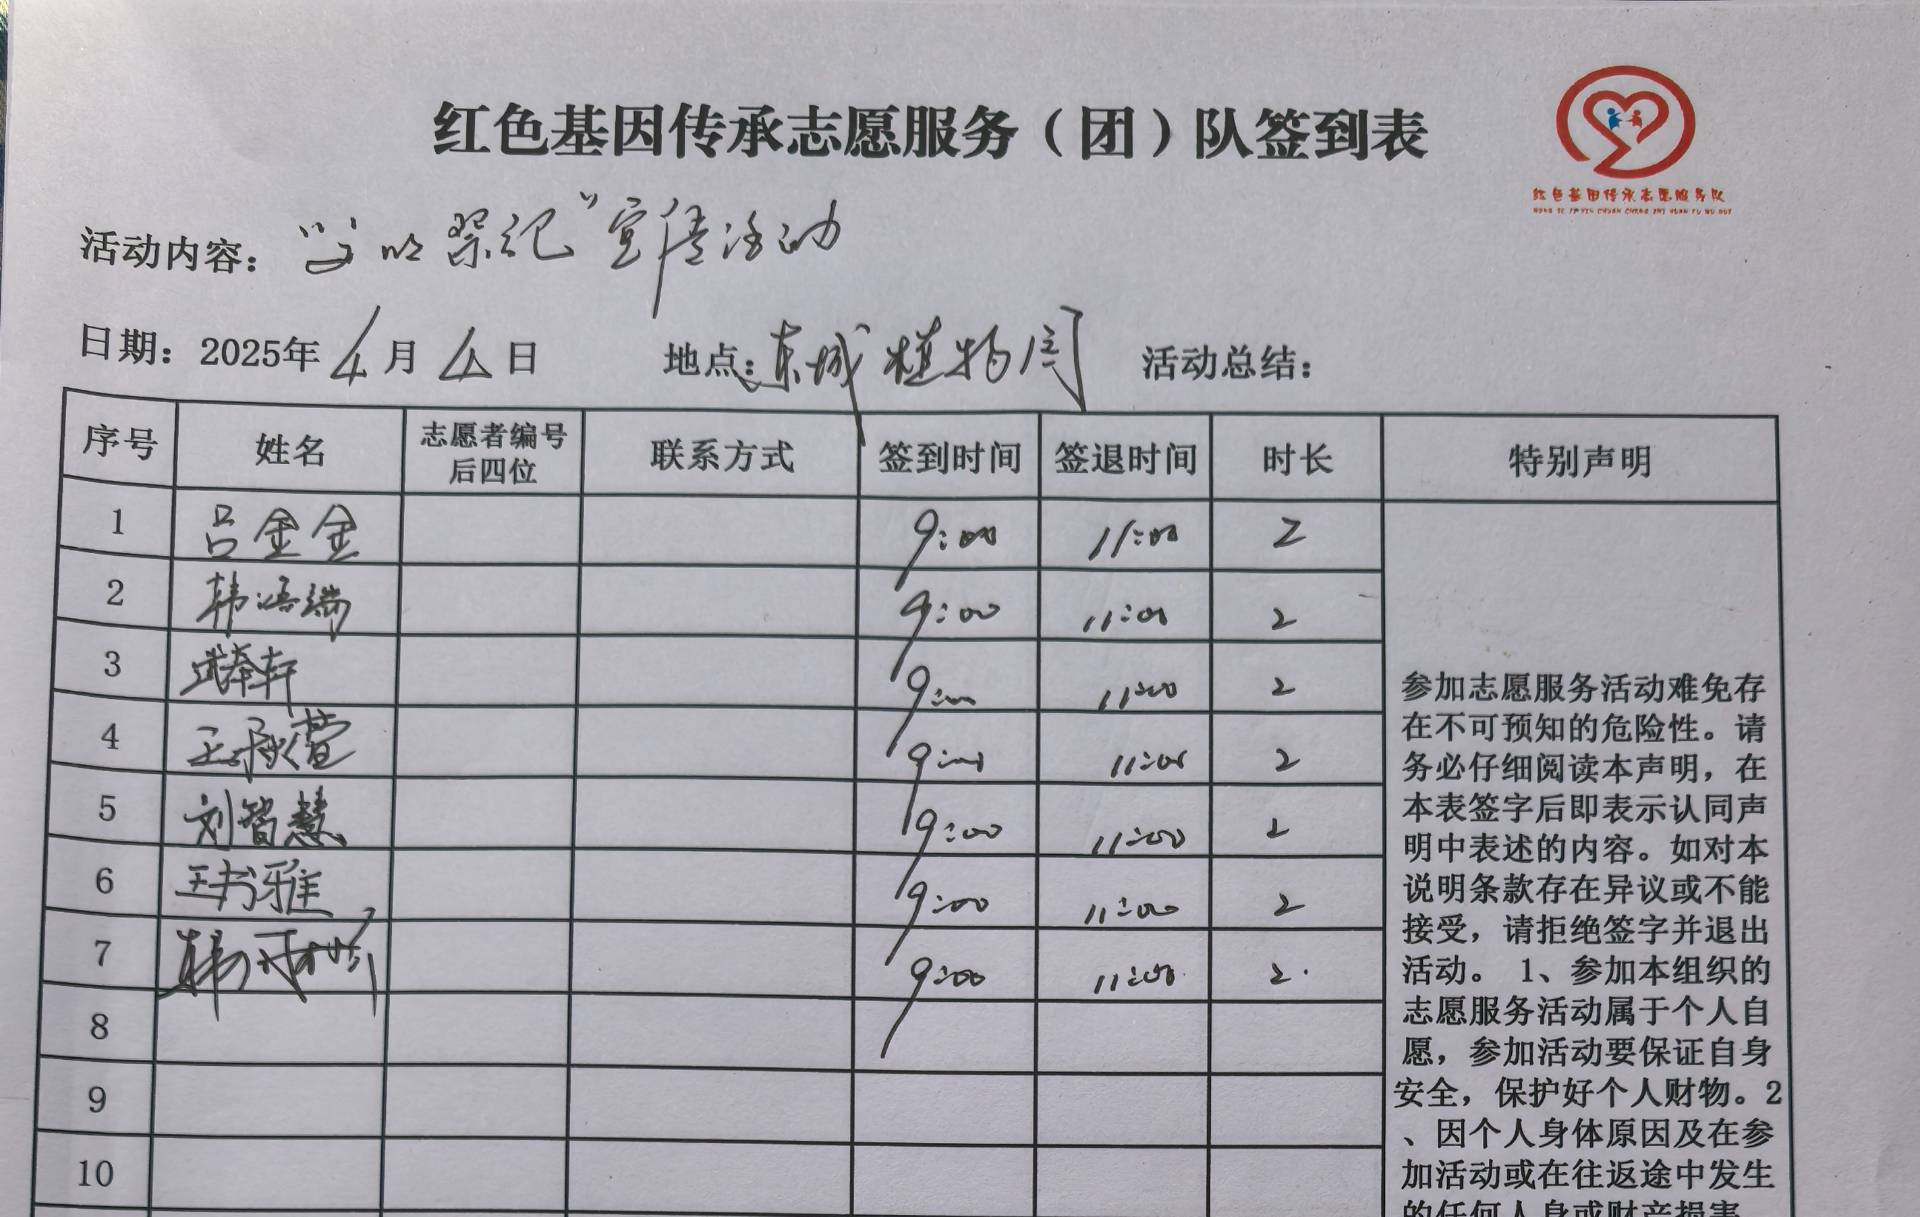 红色基因传承志愿服务（团）队签到表
红色基因传承志愿服务队
HONG SE JI YIN CHUAN CHENG ZHI YUAN FU WU DUI
活动内容：“文明祭祀”宣传活动
日期：2025年4月4日 地点：东城植物园 活动总结：
序号 姓名 志愿者编号后四位 联系方式 签到时间 签退时间 时长 特别声明
1 吕金金 9:00 11:00 2
2 韩语端 9:00 11:00 2
3 武奉轩 9:00 11:00 2
4 王承萱 9:00 11:00 2
5 刘智慧 9:00 11:00 2
6 王书雅 9:00 11:00 2
7 韩 9:00 11:00 2.
8
9
10
参加志愿服务活动难免存
在不可预知的危险性。请
务必仔细阅读本声明，在
本表签字后即表示认同声
明中表述的内容。如对本
说明条款存在异议或不能
接受，请拒绝签字并退出
活动。 1、参加本组织的
志愿服务活动属于个人自
愿，参加活动要保证自身
安全，保护好个人财物。2
、因个人身体原因及在参
加活动或在往返途中发生
的任何人身或财产损害